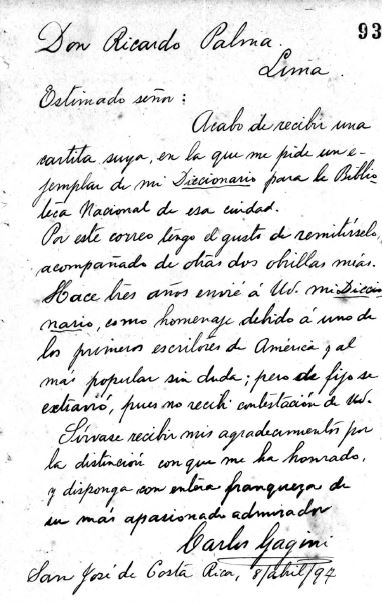 93
Don Ricardo Palma.
Lima.
Estimado señor:
Acabo de recibir una
cartita suya, en la que me pide un e-
jemplar de mi Diccionario para la Biblio-
teca Nacional de esa ciudad.
Por este correo tengo el gusto de remitírselo,
acompañado de otras dos obrillas mías.
Hace tres años envié á Ud. mi Diccio-
nario, como homenaje debido á uno de
los primeros escritores de América y al
más popular sin duda; pero de fijo se
extravió, pues no recibí contestación de Ud.
Sírvase recibir mis agradecimientos por
la distinción con que me ha honrado,
y disponga con entera franqueza de
su más apasionado admirador
Carlos Gagini
San José de Costa Rica, 8/abril/97